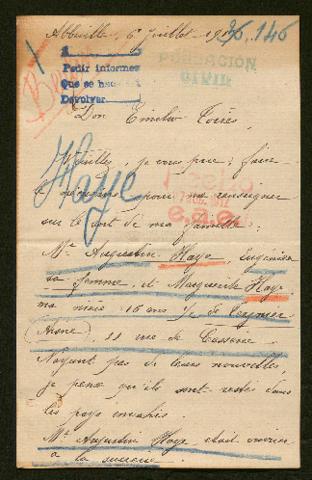 Abbeville, 6 Juillet 191
36.146
A
Pedir informes
Que se haga
Devolver
POBLACIÓN
CIVIL
Don Emilio Torres
Haye
Veuillez, je vous prie, faire
pour me renseigner
sur le sort de ma famille:
Mr Augustin Haye, Eugénie
sa femme, et Marguerite Haye
ma nièce 16 ans, de Tergnier
Aisne
21 rue de
N'ayant pas de leurs nouvelles,
je pense qu'ils sont restés dans
les pays envahis.
Mr Augustin Haye était ouvrier
à la sucrerie.